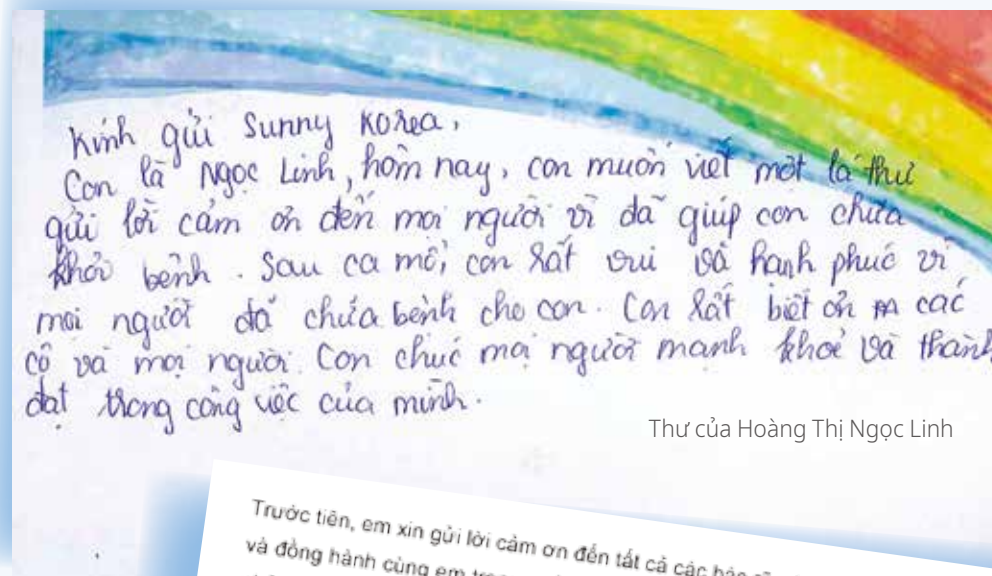 Kính gửi Sunny Korea,
Con là Ngọc Linh, hôm nay, con muốn viết một lá thư
gửi lời cảm ơn đến mọi người vì đã giúp con chữa
khỏi bệnh. Sau ca mổ, con rất vui và hạnh phúc vì
mọi người đã chữa bệnh cho con. Con rất biết ơn các
cô và mọi người. Con chúc mọi người mạnh khoẻ và thành
đạt trong công việc của mình.
Thư của Hoàng Thị Ngọc Linh
Trước tiên, em xin gửi lời cảm ơn đến tất cả các bác
và đồng hành cùng em